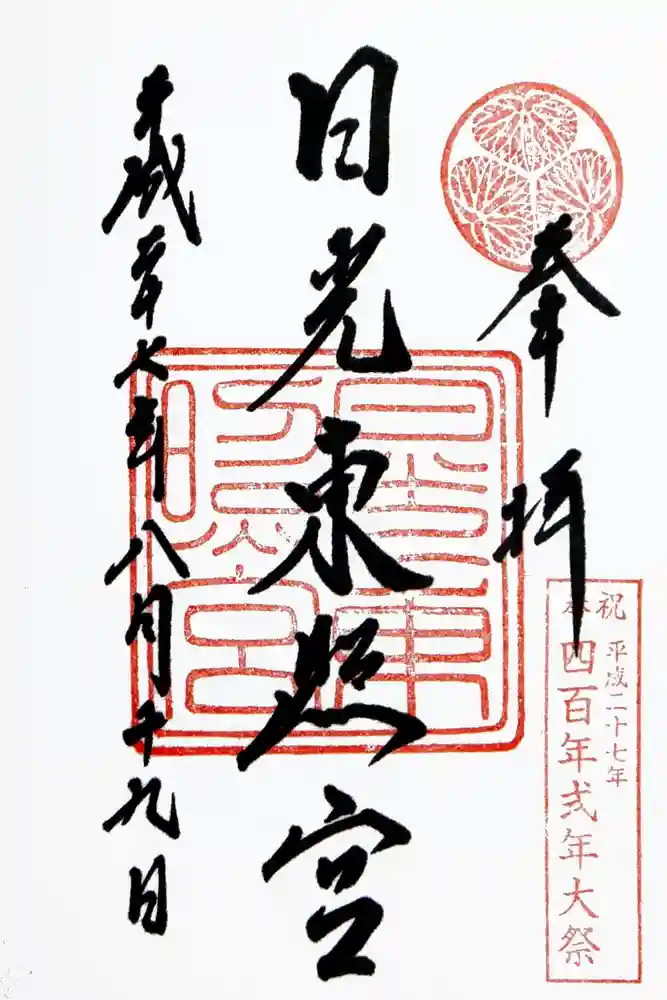 奉拝
日光東照宮
平成二十七年八月十九日
奉祝
平成二十七年
四百年式年大祭
日光東
照宮